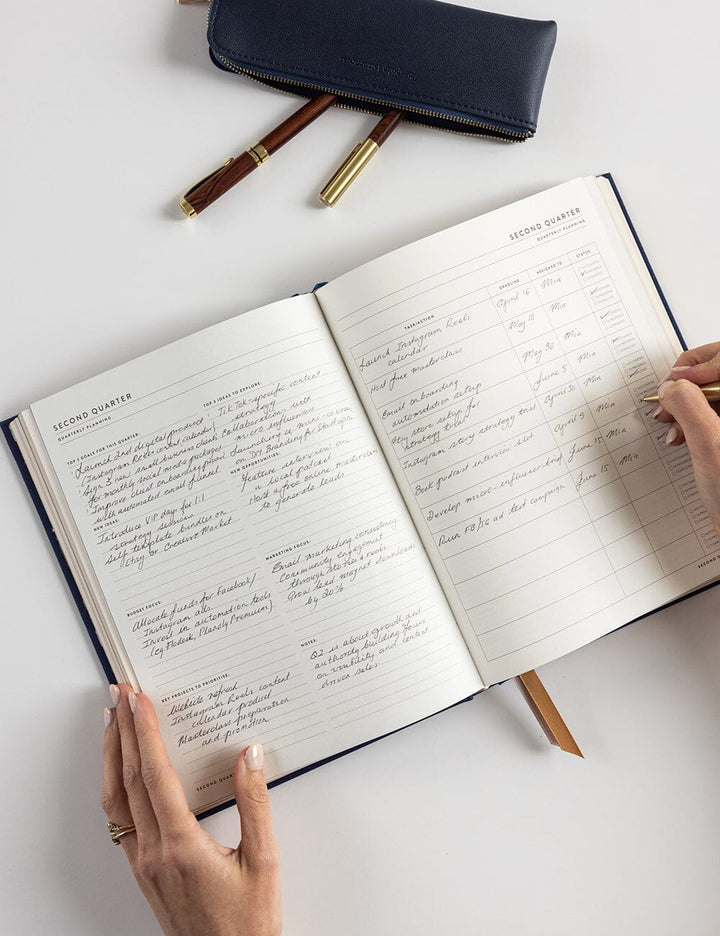 SECOND QUARTER
QUARTERLY PLANNING
TOP 3 GOALS FOR THIS QUARTER:
Launch 2nd digital product
(Instagram Reels content calendar)
Sign 5 new small business clients
for monthly social media packages
Improve client onboarding process
with automated email funnel
TOP 3 IDEAS TO EXPLORE:
TikTok-specific content
strategy
Collaborations with
micro influencers
Launching a mini-course
on "DIY Branding for Startups"
NEW IDEAS:
Introduce VIP days for 1:1
strategy sessions
Sell template bundles on
Etsy or Creative Market
NEW OPPORTUNITIES:
Feature interview on
a local podcast
Host a free online masterclass
to generate leads
BUDGET FOCUS:
Allocate funds for Facebook/
Instagram ads
Invest in automation tools
(eg. Flodesk, Planoly Premium)
MARKETING FOCUS:
Email marketing consistency
Community engagement
through stories & reels
Grow lead magnet downloads
by 20%
KEY PROJECTS TO PRIORITISE:
Website refresh
Instagram Reels content
calendar product
Masterclass preparation
and promotion
NOTES:
Q2 is about growth and
authority building focus
on visibility and content
driven sales.
SECOND QUARTER
QUARTERLY PLANNING
TASK/ACTION DEADLINE ASSIGNED TO STATUS
Launch Instagram Reels April 16 Min
calendar
Host free masterclass May 10 Min
Email onboarding May 30 Min
automation setup
Etsy store setup for June 5 Min
strategy
Instagram story strategy trial April 30 Min
Book podcast interview slot April 5 Min
Develop micro-influencer brief June 15 Min
Run FB/IG ad test campaign June 15 Min